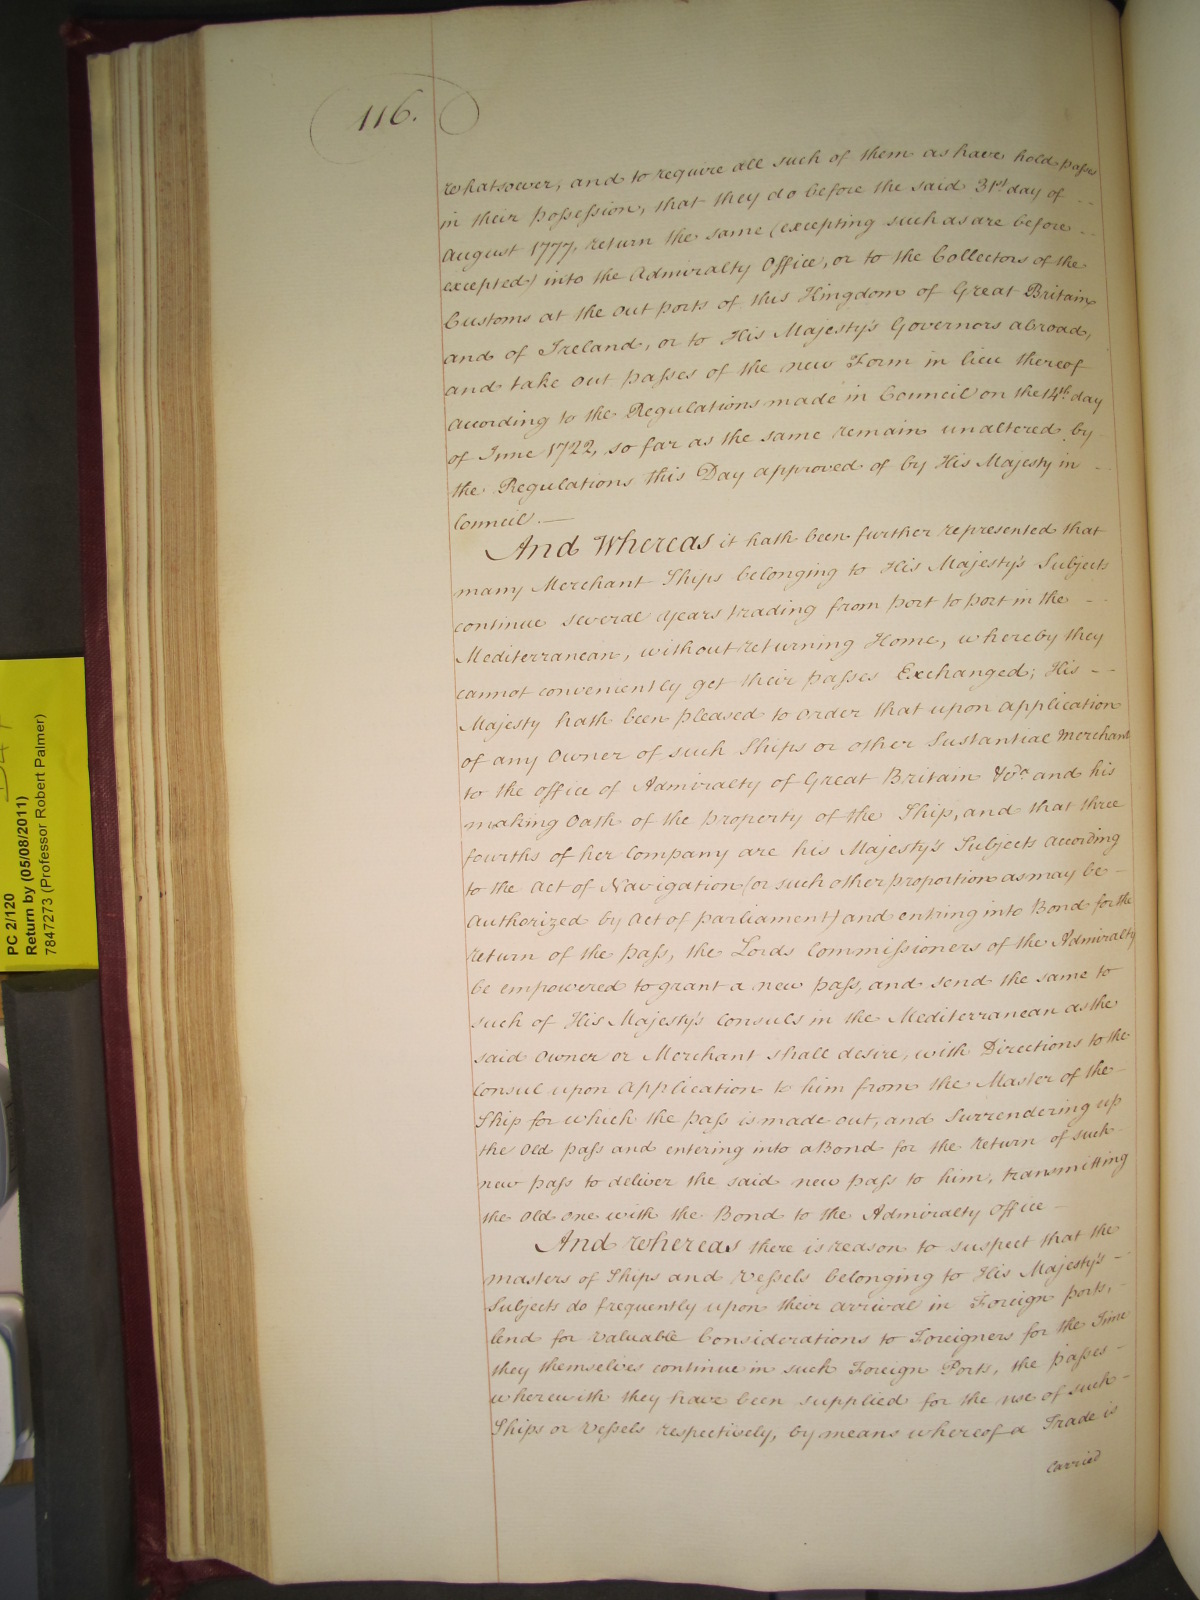 116.
whatsoever, and to require all such of them as have hold passes
in their possession, that they do before the said 31st day of --
August 1777, return the same (excepting such as are before --
excepted) into the Admiralty Office, or to the Collectors of the
Customs at the out ports of this Kingdom of Great Britain
and of Ireland, or to His Majesty's Governors abroad,
and take out passes of the new Form in lieu thereof
according to the Regulations made in Council on the 14th day
of June 1722, so far as the same remain unaltered by
the Regulations this Day approved of by His Majesty in --
Council. —
And Whereas it hath been further represented that
many Merchant Ships belonging to His Majesty's Subjects
continue several years trading from port to port in the --
Mediterranean, without returning Home, whereby they
cannot conveniently get their passes Exchanged; His --
Majesty hath been pleased to order that upon application
of any Owner of such Ships or other Sustantial Merchant
to the office of Admiralty of Great Britain and his
making Oath of the property of the Ship, and that three
fourths of her Company are his Majesty's Subjects according
to the Act of Navigation (or such other proportion as may be -
Authorized by Act of parliament) and entring into Bond for the
return of the pass, the Lords Commissioners of the Admiralty
be empowered to grant a new pass, and send the same to
such of His Majesty's Consuls in the Mediterranean as the
said Owner or Merchant shall desire, with Directions to the
Consul upon Application to him from the Master of the -
Ship for which the pass is made out, and Surrendering up
the Old pass and entering into a Bond for the return of such
new pass to deliver the said new pass to him, transmitting
the Old one with the Bond to the Admiralty Office -
And whereas there is reason to suspect that the
masters of Ships and Vessels belonging to His Majesty's -
Subjects do frequently upon their arrival in Foreign ports, -
lend for valuable Considerations to Foreigners for the Time
they themselves continue in such Foreign Ports, the passes -
wherewith they have been supplied for the use of such -
Ships or Vessels respectively, by means whereof a Trade is
carried
PC 2/120
Return by (05/08/2011)
7847273 (Professor Robert Palmer)